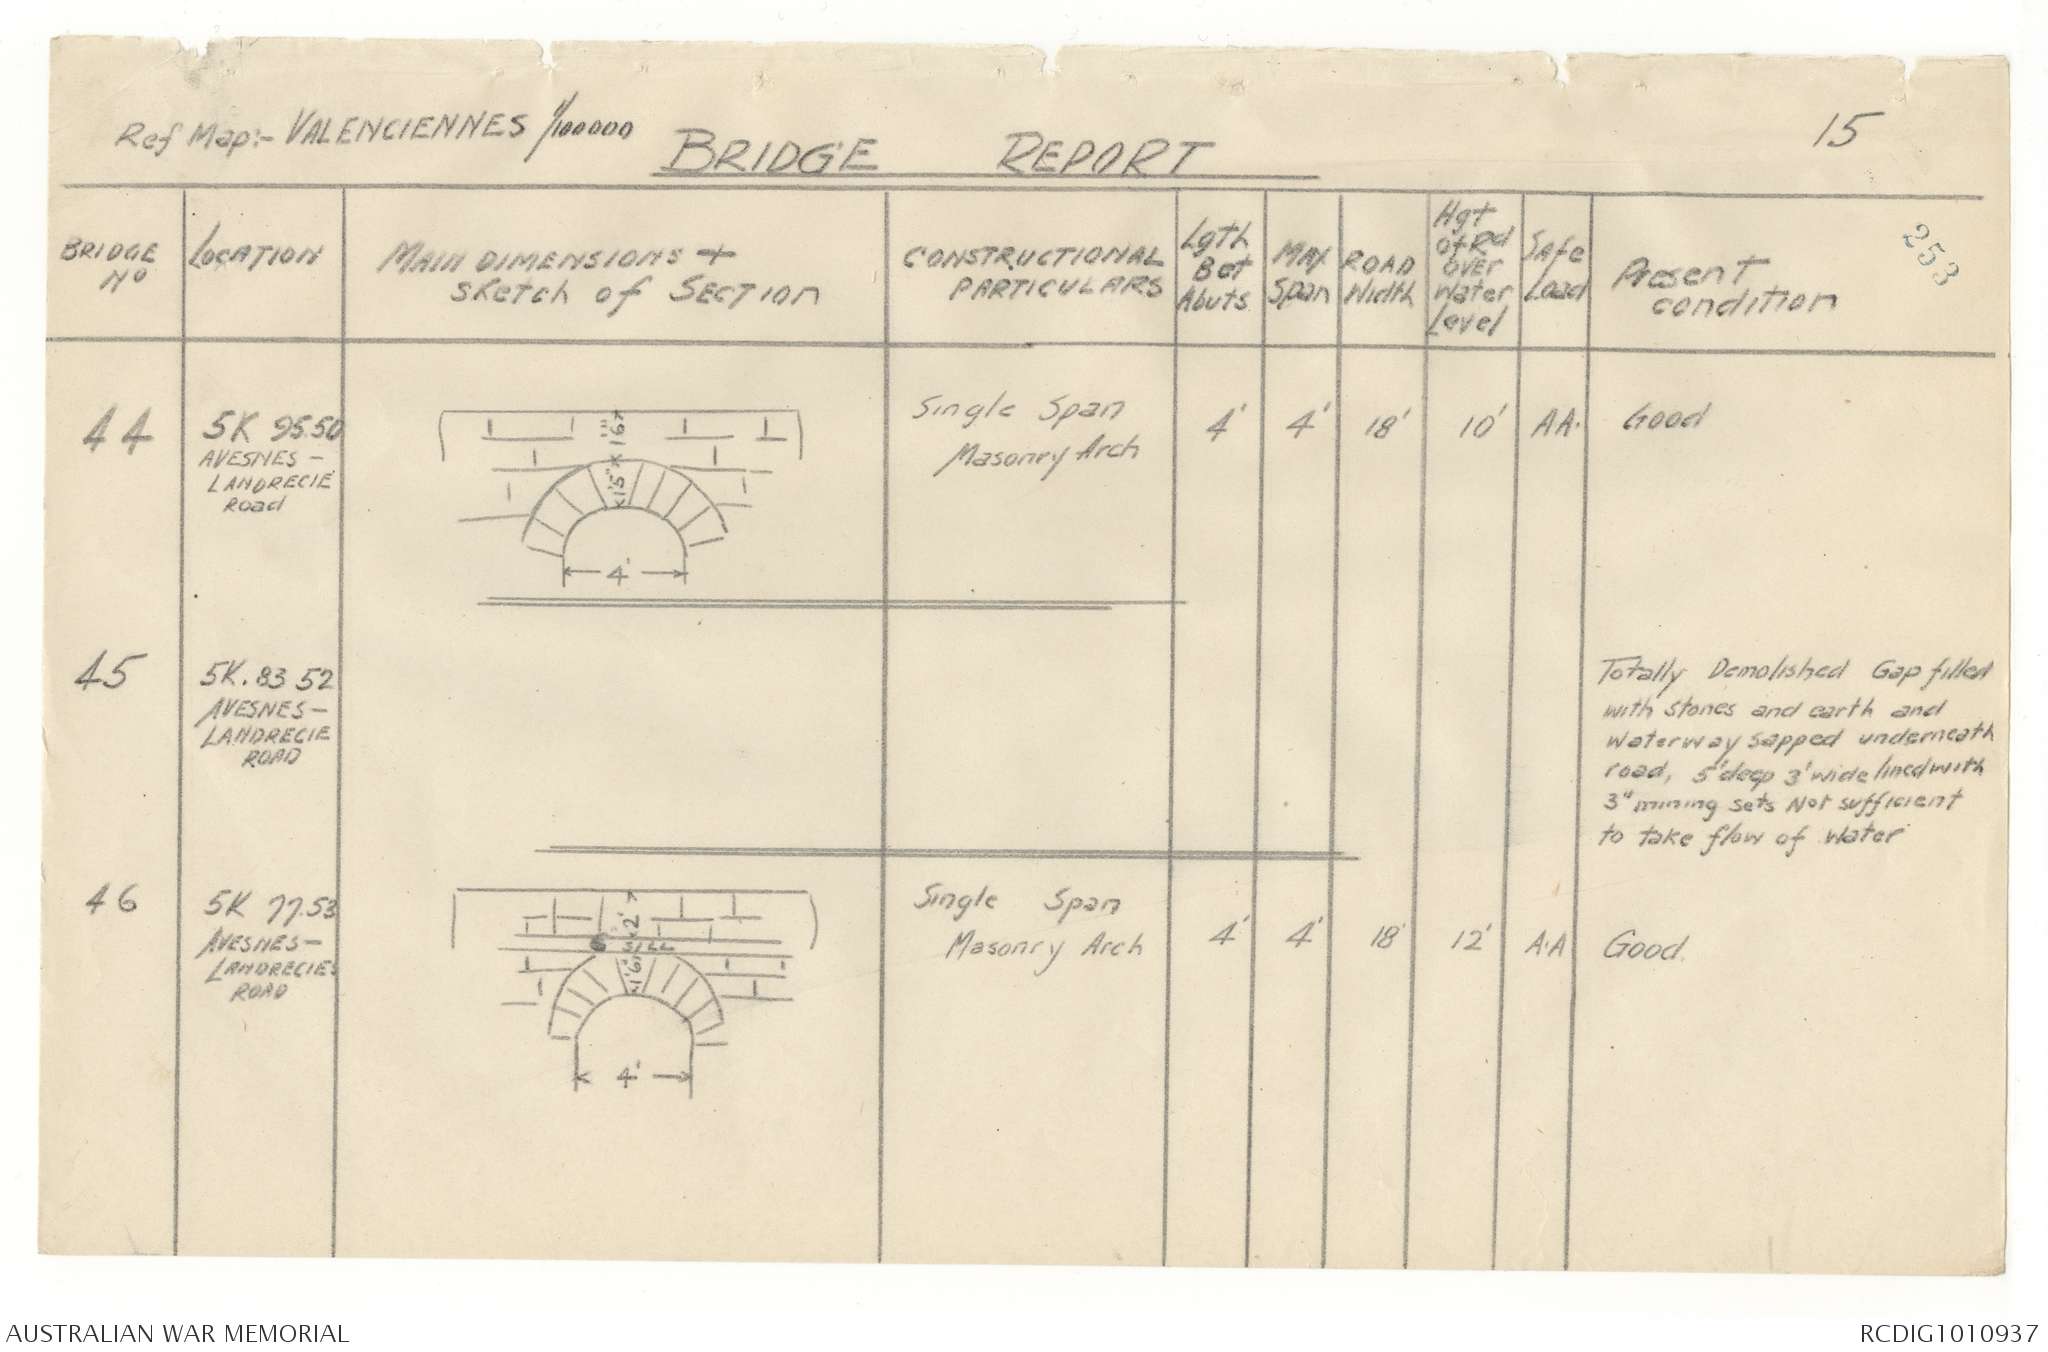 Ref Map:- VALENCIENNES 1/100000
BRIDGE REPORT
15
253
BRIDGE
No
LOCATION
MAIN DIMENSIONS +
Sketch of SECTION
CONSTRUCTIONAL
PARTICULARS
Lgth
Bet
Abuts
MAX
Span
ROAD
Width
Hgt
of Rd
over
Water
Level
Safe
Load
Present
condition
44
5K 95.50
AVESNES -
LANDRECIE
Road
1'6"
1'5"
4'
Single Span
Masonry Arch
4'
4'
18'
10'
AA.
Good
45
5K. 83 52
AVESNES -
LANDRECIE
ROAD
Totally Demolished Gap filled
with stones and earth and
waterway sapped underneath
road, 5' deep 3' wide lined with
3" mining sets Not sufficient
to take flow of water
46
5K 77.53
AVESNES -
LANDRECIES
ROAD
2'
6" SILL
1'6"
4'
Single Span
Masonry Arch
4'
4'
18'
12'
A.A
Good.
AUSTRALIAN WAR MEMORIAL
RCDIG1010937